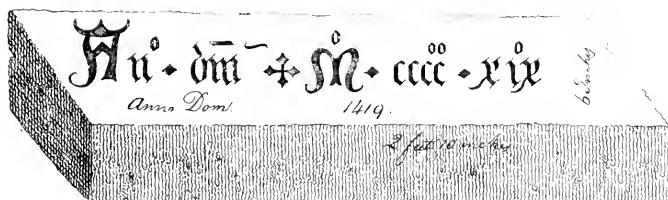 Anº · dm̄ ✣ M̊ · cccc̊ · xix̊
Anno Dom. 1419.
6 Inches
2 feet 10 inches